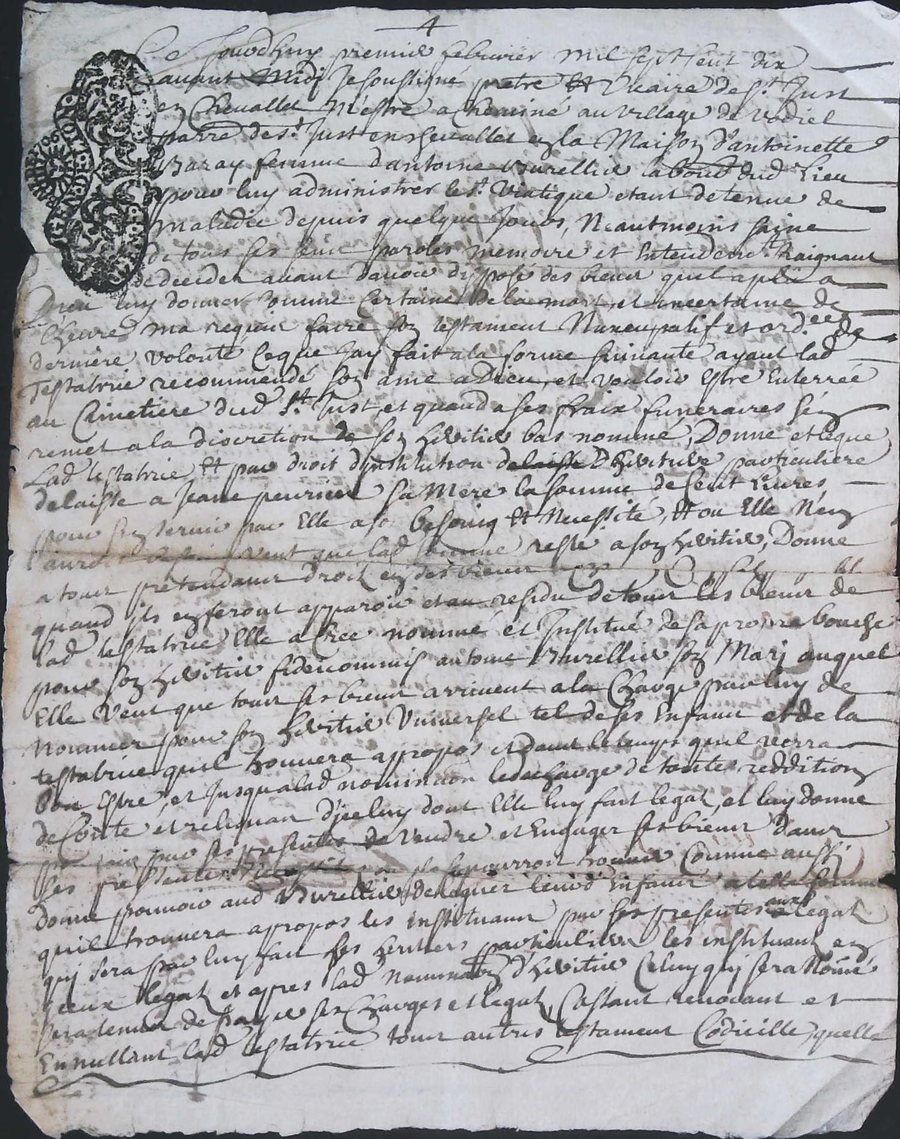 4
Ce Jourdhuy premier febvrier mil sept sent dix
avant Midy Je soussigné pretre Et Vicaire de St Just
en Chevallet Mestre acheminé au village de
parre de St Just en chevallet en la Maison d'antoinette
femme dantoine Burellier labour dud Lieu
pour luy administrer le St Viatique etant detenue de
maladie depuis quelque Jours, Neautmoins saine
de tous ses sens parolle memoire et Entendemt Craignant
de deceder avant davoir disposé des bieux quil a plu a
Dieu luy donner comme Certaine de la mort et incertaine de
lheure ma requis faire son testament Nuncupatif et ordce de
derniere volonté Ceque Jay fait ala forme suivante ayant lad
Testatrice recommendé son ame a Dieu, et vouloir Estre Enterrée
au Cimetiere dud St Just et quand a ses fraix funeraires sen
remet a la discretion de son heritier bas nommé, Donne et legue
Lad testatrice Et par droit d'institution delaisse D'heriture particuliere
delaisse a Jeane perrin sa Mere la somme de sent livres
pour sen servir par Elle a son besoing Et Necessité, Et ou Elle Nen
auroit veut que lad somme reste a son heritier, Donne
a tous pretendant droit en ses bieux
quand ils en feront apparoir et au residu de tous les bieux de
lad testatrice Elle a Cree nommé et Institué de sa propre bouche
pour son heritier fideicommis antoine Burellier son Mary auquel
Elle Veut que tous ses bieux arrivent a la Charge par luy de
Nommer pour son heritier Universel tel de ses Enfans et de la
testatrice quil trouvera apropos et dans le temps quil verra
bon Estre, et Jusqua lad nomination le decharge de toutes reddition
de Conte et reliquat dont Elle luy fait legat, et luy donne
par ses presentes de Vendre et Engager ses bieux dans
ses pourroit trouver Comme aussi
donne pouvoir aud Burellier de leguer leurs Enfans a telle somme
quil trouvera apropos les instituant par ses presentes aux legat
qui sera par luy fait ses heritiers particulier les instituant en
yceux legat et apres lad nomination d'heritier Celuy qui sera Nommé
sera tenu de payer ses Charges et legat, Cassant revocant et
Ennullant lad testatrice tous autres testament Codicille quelle